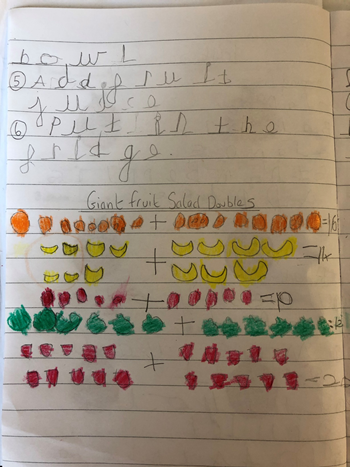 bowl
⑤ Add fruit
juice
⑥ Put in the
fridge.
Giant fruit Salad Doubles
+ =16
+ =14
+ =10
+
+ =2